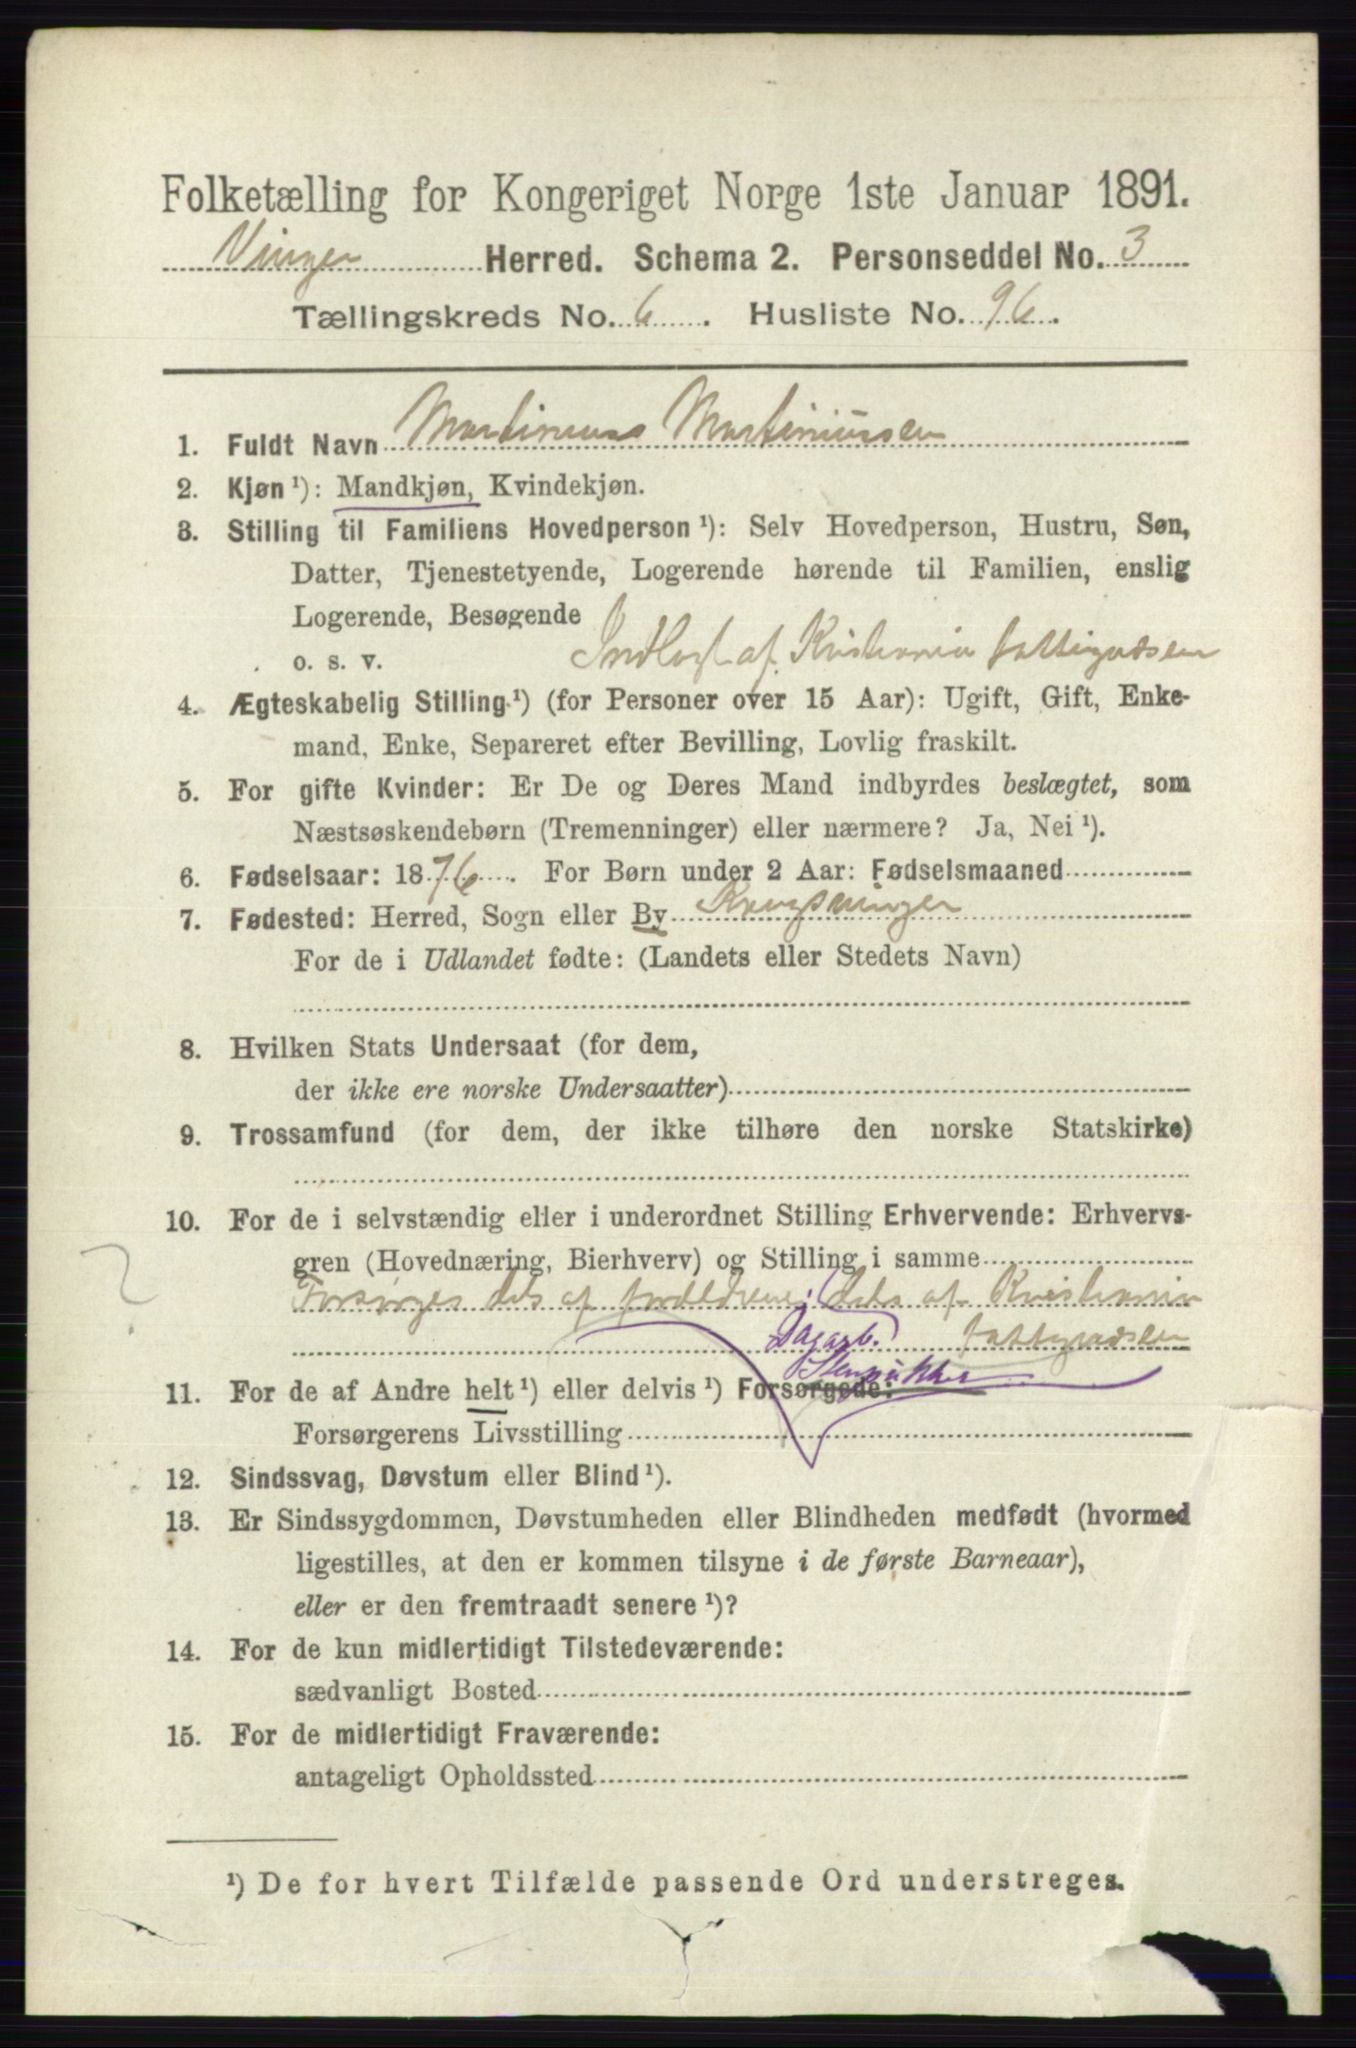 Folketælling for Kongeriget Norge 1ste Januar 1891.
Vinger Herred. Schema 2. Personseddel No. 3
Tællingskreds No. 6. Husliste No. 96.
1. Fuldt Navn Martineus Martiniussen
2. Kjøn ¹): Mandkjøn, Kvindekjøn.
3. Stilling til Familiens Hovedperson ¹): Selv Hovedperson, Hustru, Søn,
Datter, Tjenestetyende, Logerende hørende til Familien, enslig
Logerende, Besøgende
o. s. v. Indlagt af Kristiania fattigvdsen
4. Ægteskabelig Stilling ¹) (for Personer over 15 Aar): Ugift, Gift, Enke-
mand, Enke, Separeret efter Bevilling, Lovlig fraskilt.
5. For gifte Kvinder: Er De og Deres Mand indbyrdes beslægtet, som
Næstsøskendebørn (Tremenninger) eller nærmere? Ja, Nei ¹).
6. Fødselsaar: 1876. For Børn under 2 Aar: Fødselsmaaned
7. Fødested: Herred, Sogn eller By Kongsvinger
For de i Udlandet fødte: (Landets eller Stedets Navn)
8. Hvilken Stats Undersaat (for dem,
der ikke ere norske Undersaatter)
9. Trossamfund (for dem, der ikke tilhøre den norske Statskirke)
10. For de i selvstændig eller i underordnet Stilling Erhvervende: Erhvervs-
gren (Hovednæring, Bierhverv) og Stilling i samme
Forsørges dels af forældrene; dels af Kristiania
Dagarb. fattigvdsen
Stenpukker
11. For de af Andre helt ¹) eller delvis ¹) Forsørgede:
Forsørgerens Livsstilling
12. Sindssvag, Døvstum eller Blind ¹).
13. Er Sindssygdommen, Døvstumheden eller Blindheden medfødt (hvormed
ligestilles, at den er kommen tilsyne i de første Barneaar),
eller er den fremtraadt senere ¹)?
14. For de kun midlertidigt Tilstedeværende:
sædvanligt Bosted
15. For de midlertidigt Fraværende:
antageligt Opholdssted
¹) De for hvert Tilfælde passende Ord understreges.